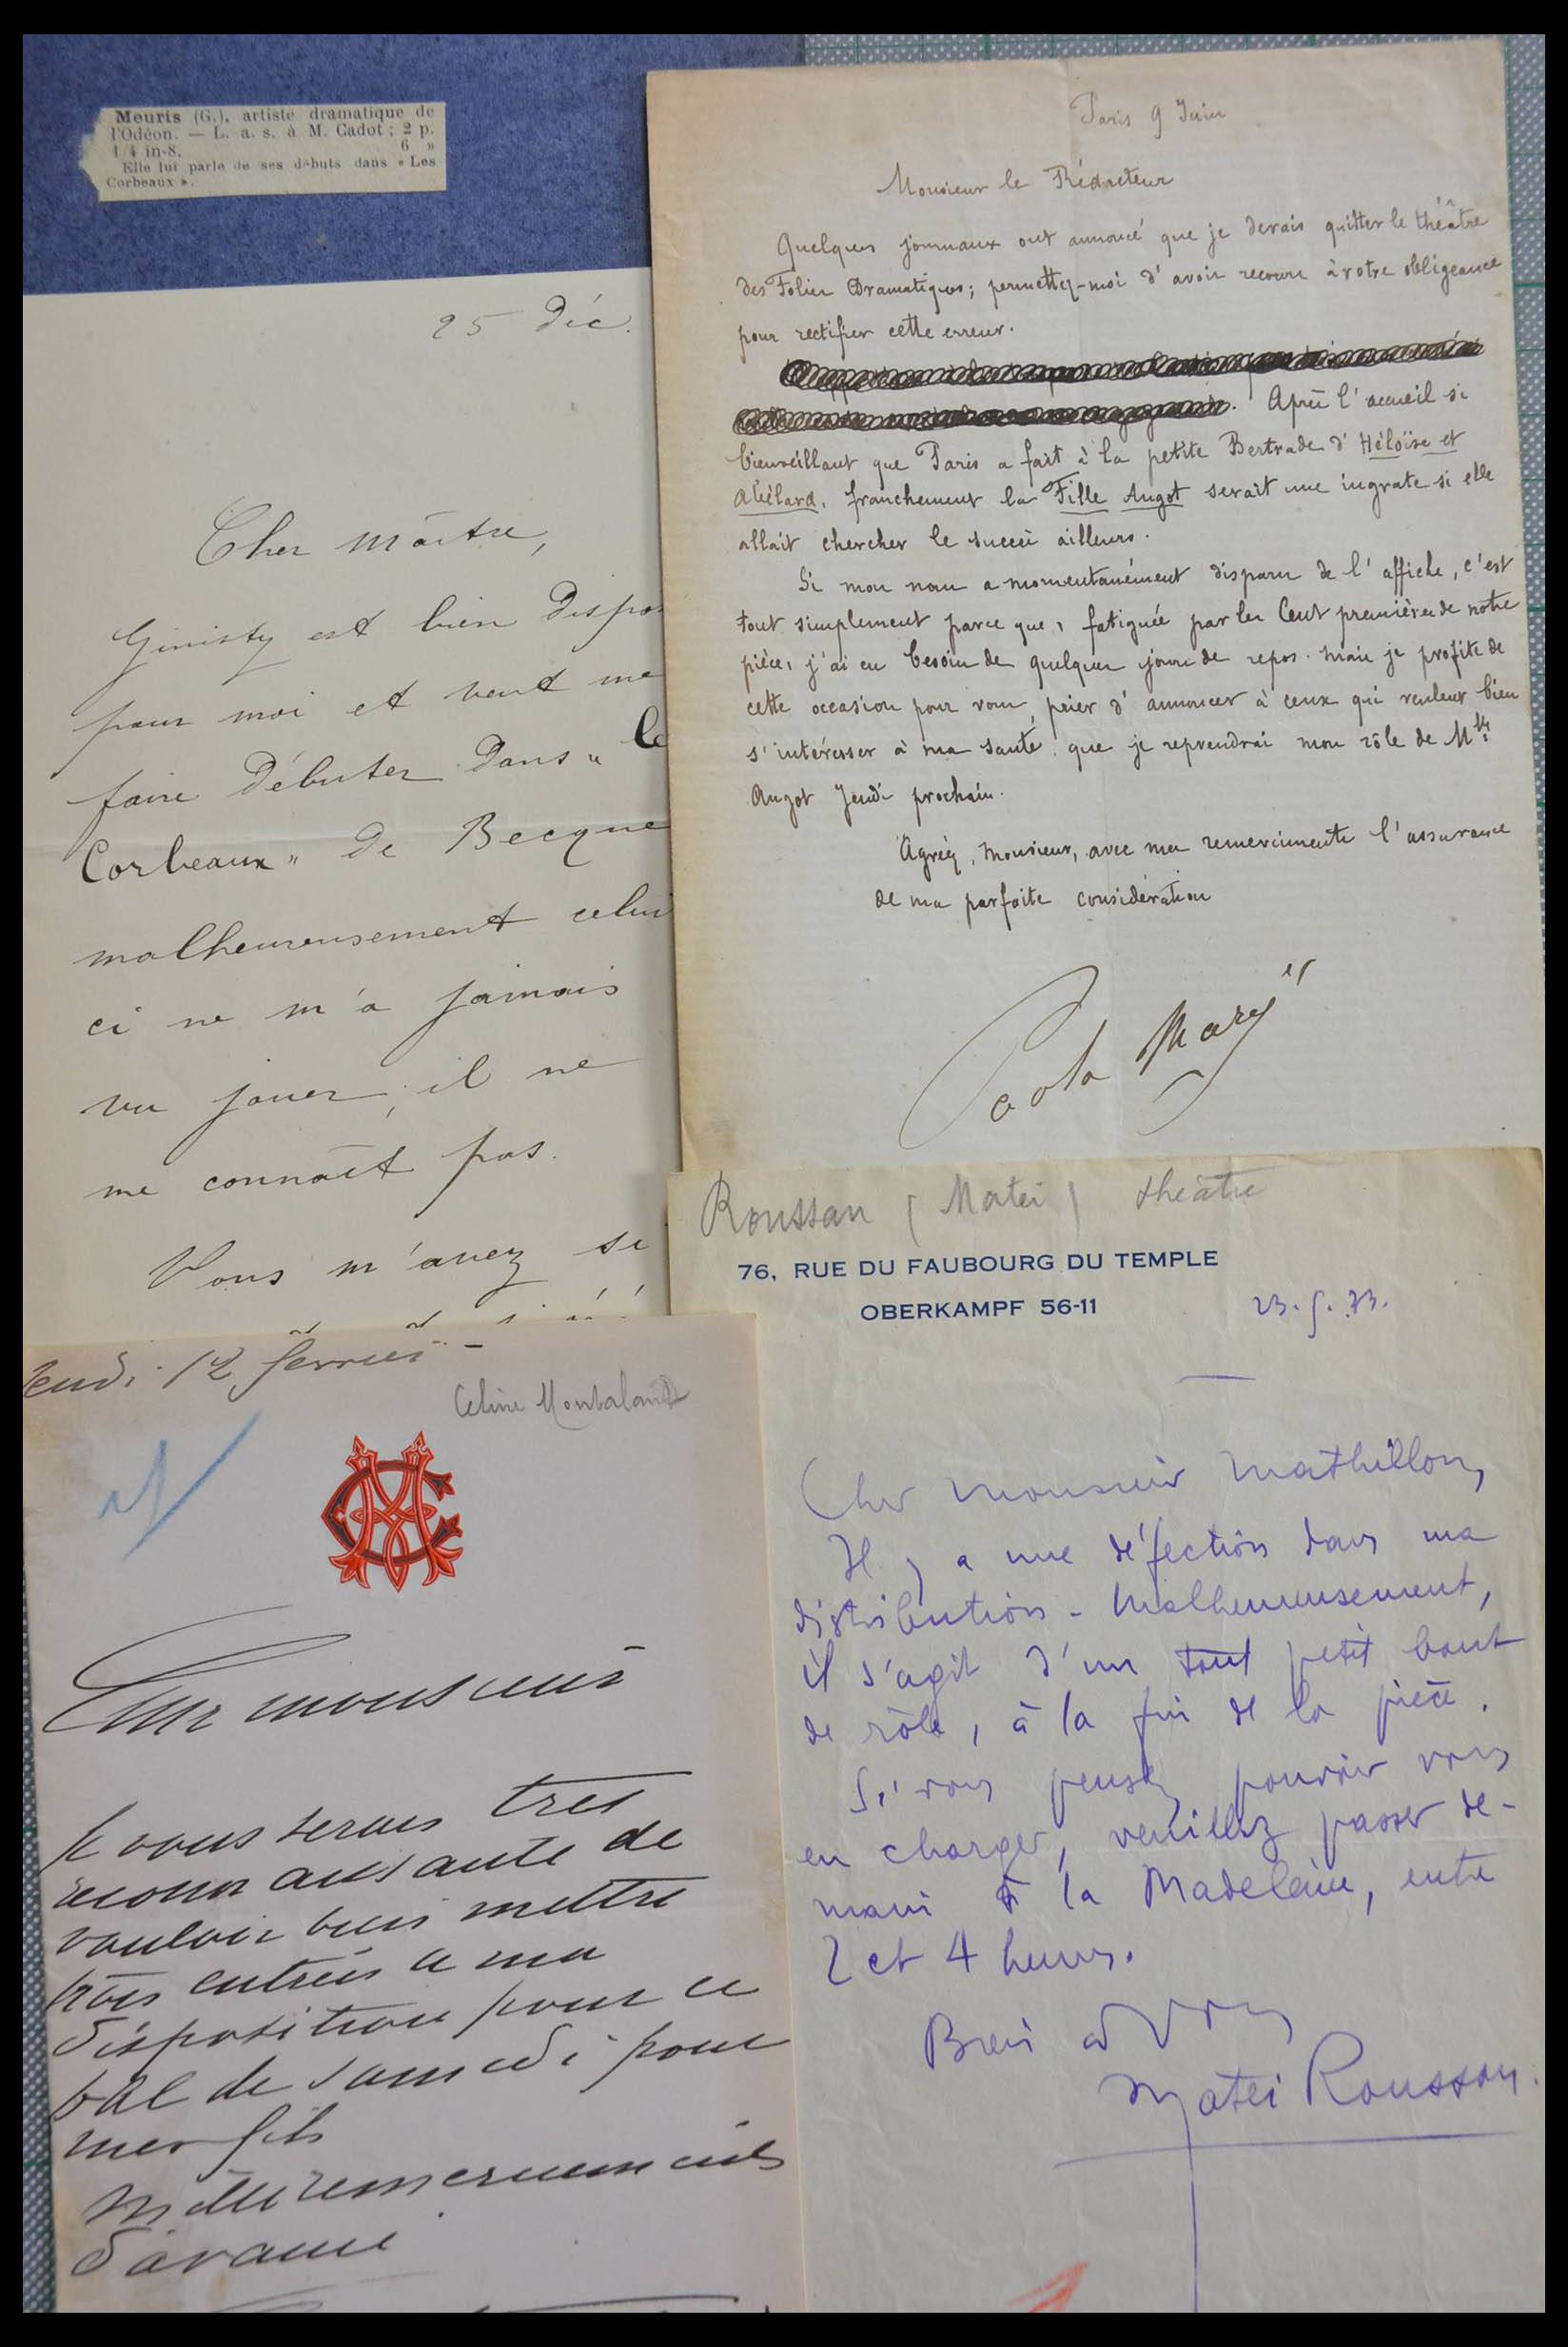 Meuris (G.), artiste dramatique de
l'Odéon. — L. a. s. à M. Cadot ; 2 p.
1/4 in-8. 6 »
Elle lui parle de ses débuts dans « Les
Corbeaux ».
25 Déc.
Cher Maître,
Ginisty est bien dispo
pour moi et veut me
faire Débuter Dans "le
Corbeaux" de Becque
malheureusement celui
ci ne m'a jamais
vu jouer, il ne
me connaît pas.
Vous m'avez si
Paris 9 Juin
Monsieur le Rédacteur
Quelques journaux ont annoncé que je devais quitter le théâtre
des Folies Dramatiques; permettez-moi d'avoir recours à votre obligeance
pour rectifier cette erreur.
Après l'accueil si
bienveillant que Paris a fait à la petite Bertrade d'Héloïse et
Abélard, franchement la Fille Angot serait une ingrate si elle
allait chercher le succès ailleurs.
Si mon nom a momentanément disparu de l'affiche, c'est
tout simplement parce que, fatiguée par les Cent premières de notre
pièce, j'ai eu besoin de quelques jours de repos. Mais je profite de
cette occasion pour vous prier d'annoncer à ceux qui veulent bien
s'intéresser à ma santé que je reprendrai mon rôle de Mlle
Angot Jeudi prochain.
Agréez, Monsieur, avec mes remerciments l'assurance
de ma parfaite considération
Paola Marié
Roussan (Matei) théâtre
76, RUE DU FAUBOURG DU TEMPLE
OBERKAMPF 56-11
23.5.33.
Cher Monsieur Mathillon,
Il y a une défection dans ma
distribution - Malheureusement,
il s'agit d'un tout petit bout
de rôle, à la fin de la pièce.
Si vous pensez pouvoir vous
en charger, veuillez passer de-
main à la Madeleine, entre
2 et 4 heures.
Bien à vous
Matei Roussou.
Jeudi 12 fevrier -
Celine Montaland
CM
Cher monsieur
Je vous serais tres
reconnaissante de
vouloir bien mettre
trois entrées a ma
disposition pour ce
bal de samedi pour
mes fils
Mille remerciements
d'avance